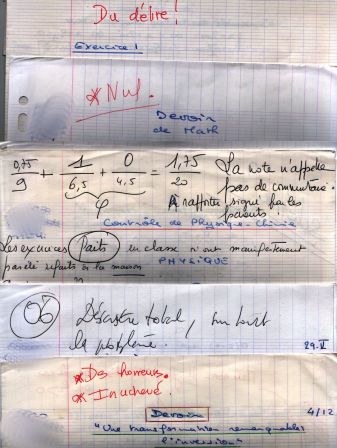 Du délire!
Exercice 1
* Nul.
Devoir
de Math
0,75/9 + 1/6,5 + 0/4,5 = 1,75/20 La note n'appelle
pas de commentaire.
φ A rapporter signé par les
parents!
Contrôle de Physique-Chimie
Les exercices faits en classe n'ont manifestement
pas été refaits à la maison
PHYSIQUE
06 Désastre total, sur tout
le problème.
29-V
* Des horreurs.
* Inachevé.
4/12
Devoir
"Une transformation remarquable:
l'inversion"